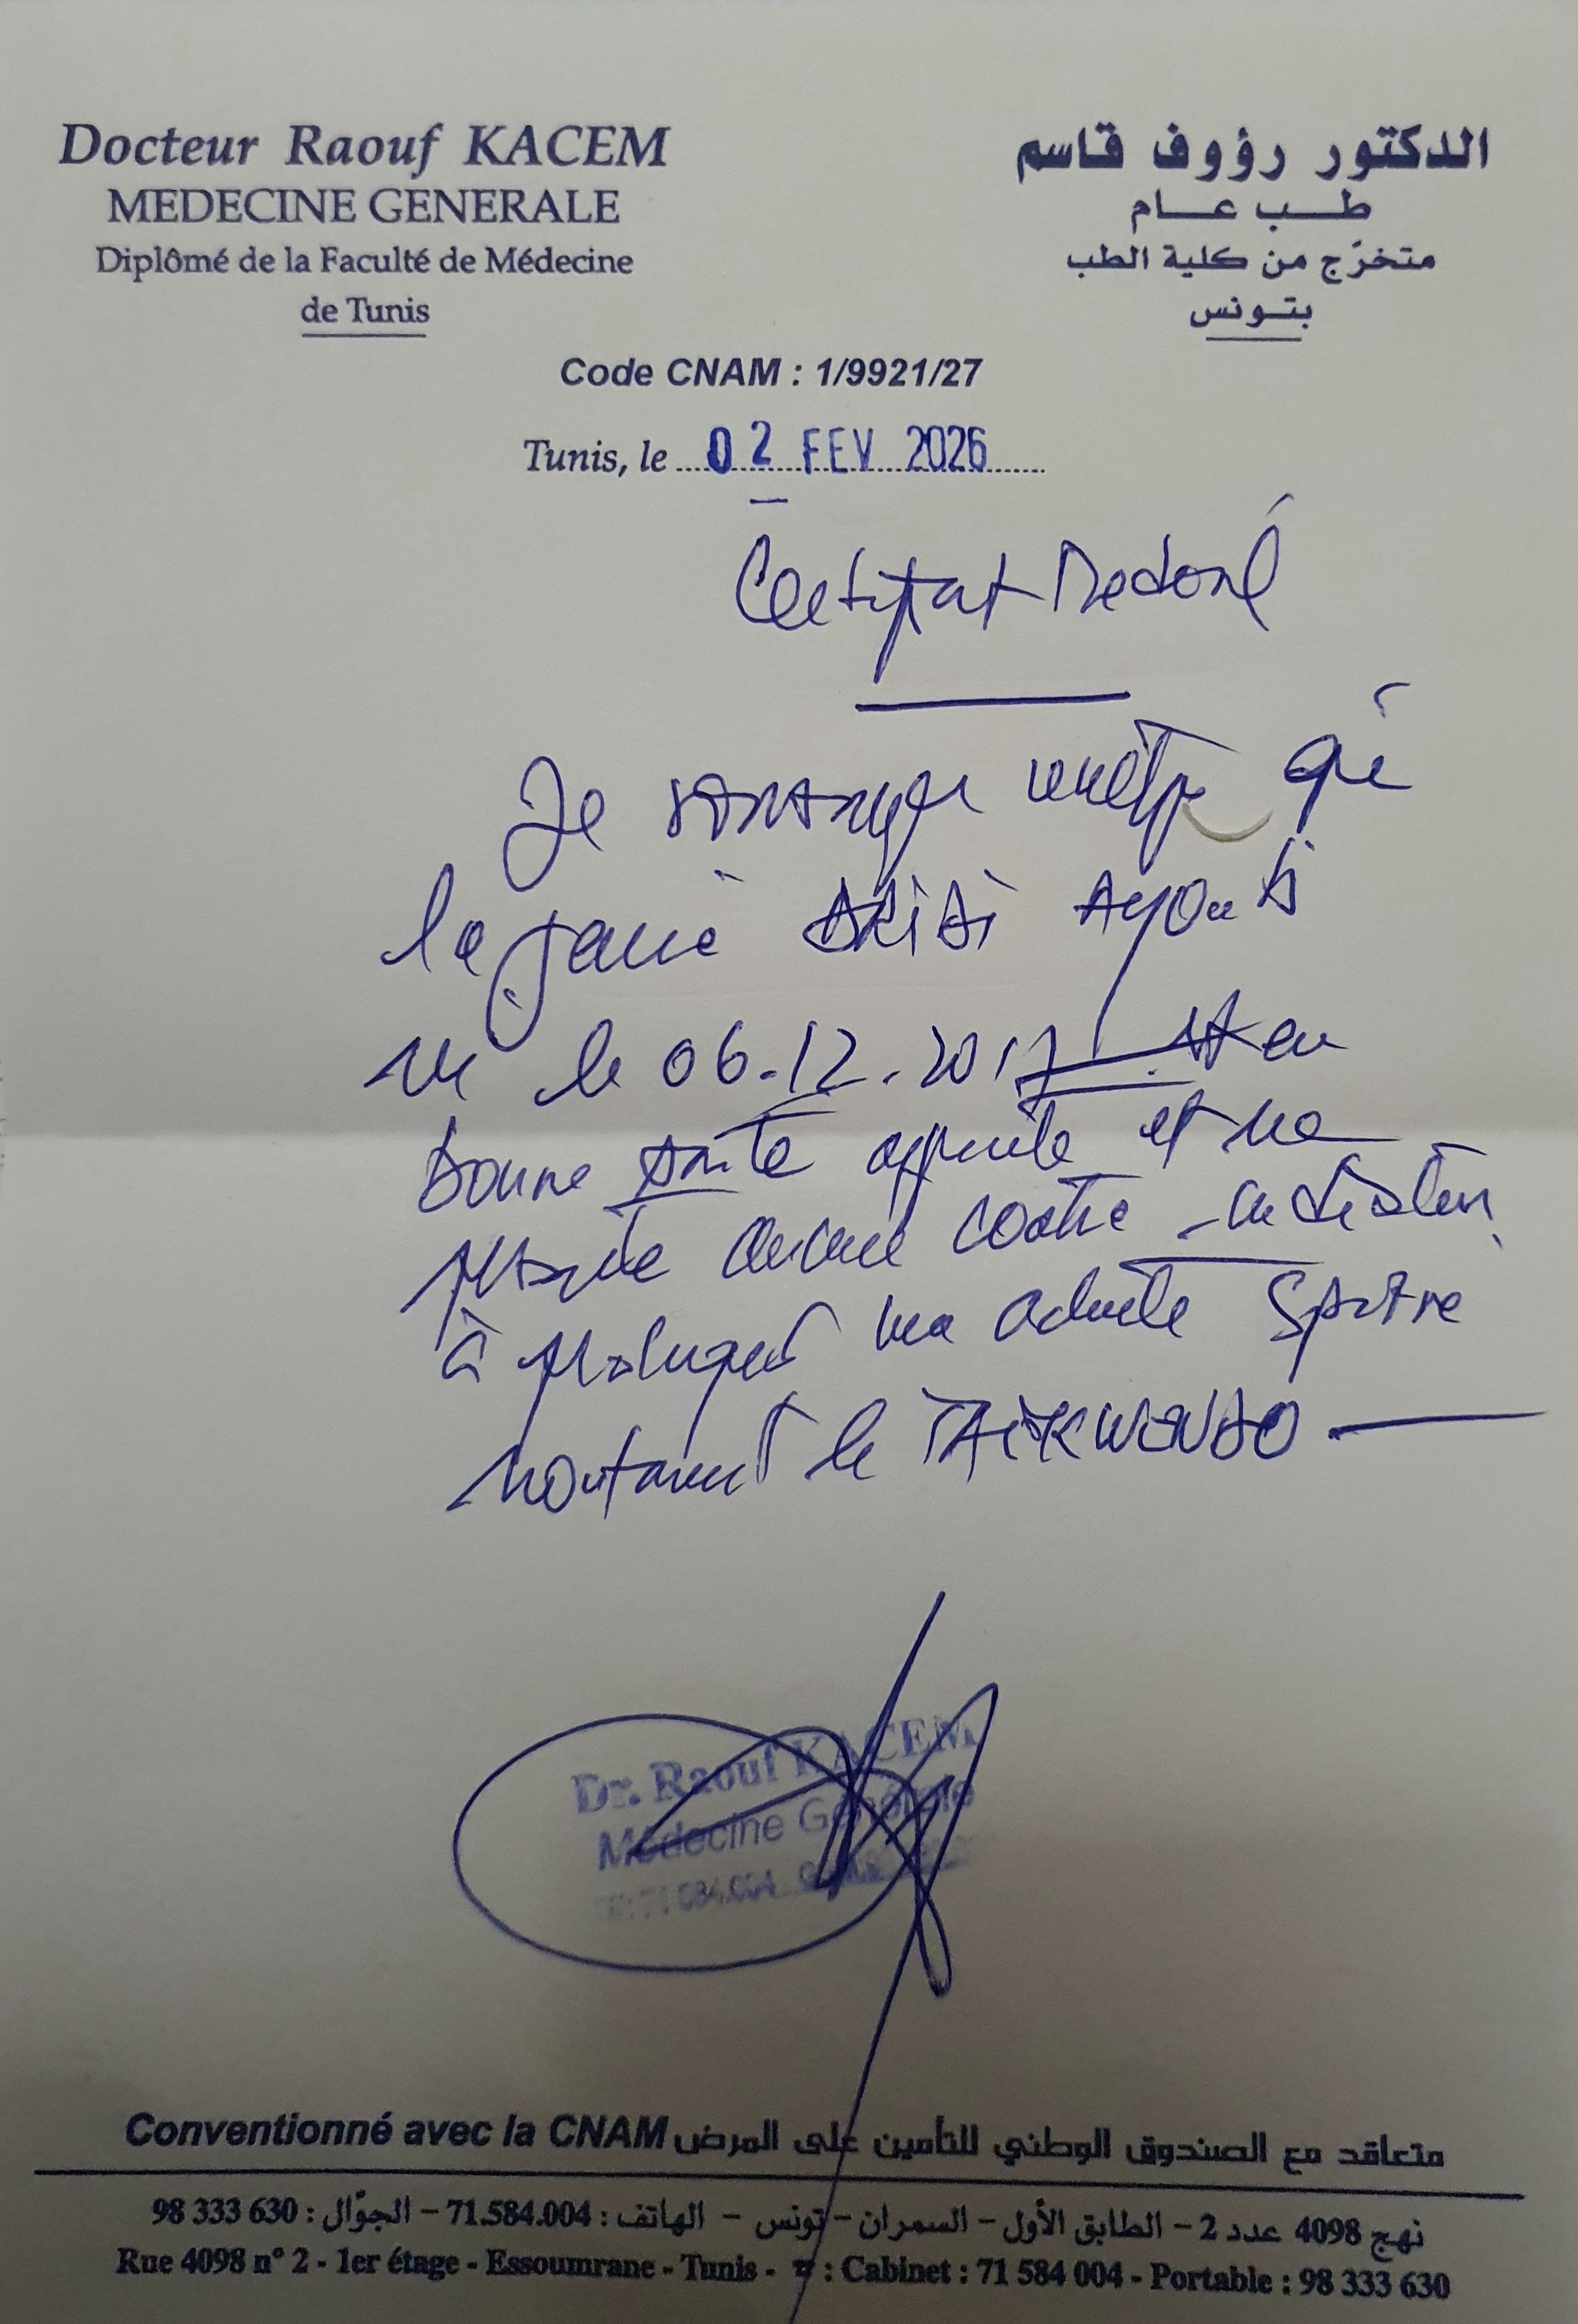 Docteur Raouf KACEM
MEDECINE GENERALE
Diplômé de la Faculté de Médecine
de Tunis
الدكتور رؤوف قاسم
طب عام
متخرّج من كلية الطب
بتونس
Code CNAM : 1/9921/27
Tunis, le 02 FEV 2026
Certificat Medical
Je certifie que
le jeune Ayoub
né le 06.12.2017 est en
bonne santé apparente et ne
présente aucune contre-indication
à pratiquer une activité sportive
notamment le TAEKWENDO
Dr. Raouf KACEM
Médecine Générale
71 584.004
Conventionné avec la CNAM متعاقد مع الصندوق الوطني للتأمين على المرض
نهج 4098 عدد 2 – الطابق الأول – السمران – تونس – الهاتف : 71.584.004 – الجوّال : 98 333 630
Rue 4098 n° 2 - 1er étage - Essoumrane - Tunis - : Cabinet : 71 584 004 - Portable : 98 333 630